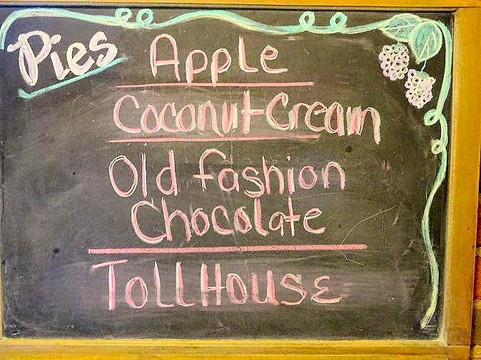 Pies
Apple
Coconut Cream
Old Fashion
Chocolate
TOLLHOUSE